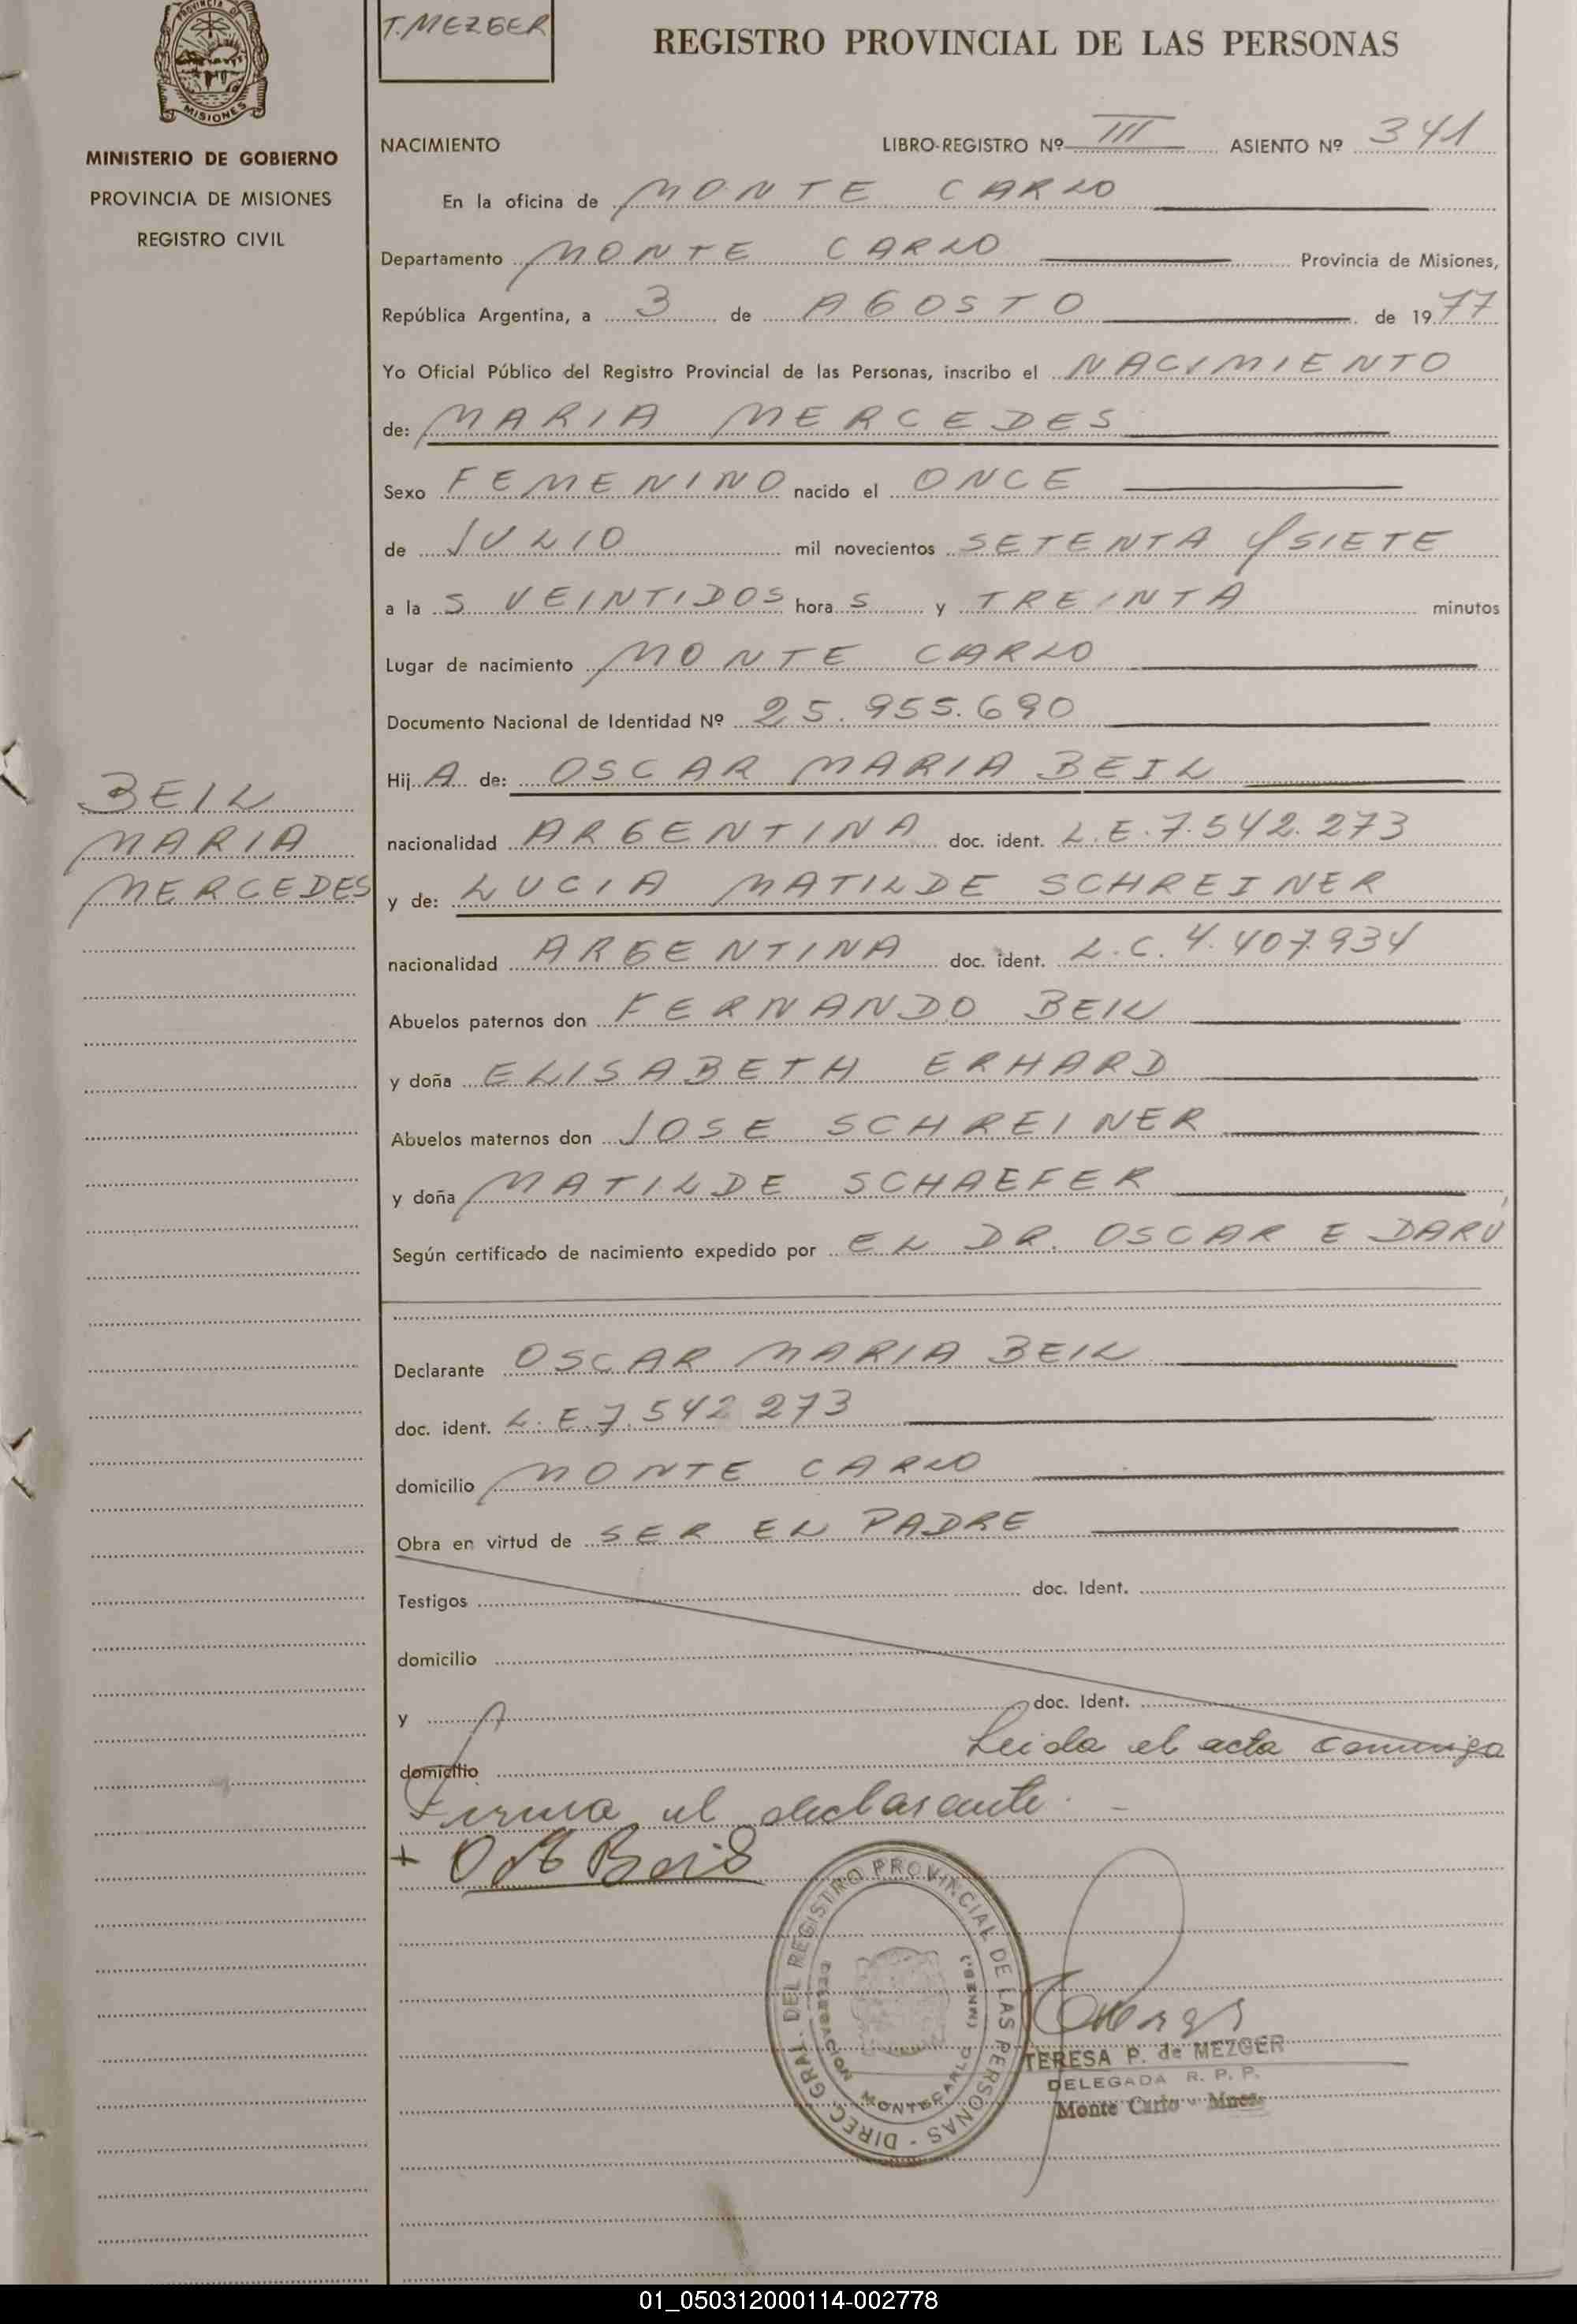 PROVINCIA DE
MISIONES
T. MEZGER
REGISTRO PROVINCIAL DE LAS PERSONAS
MINISTERIO DE GOBIERNO
PROVINCIA DE MISIONES
REGISTRO CIVIL
NACIMIENTO LIBRO-REGISTRO Nº III ASIENTO Nº 341
En la oficina de MONTE CARLO
Departamento MONTE CARLO Provincia de Misiones,
República Argentina, a 3 de AGOSTO de 1977
Yo Oficial Público del Registro Provincial de las Personas, inscribo el NACIMIENTO
de: MARIA MERCEDES
Sexo FEMENINO nacido el ONCE
de JULIO mil novecientos SETENTA Y SIETE
a la S VEINTIDOS hora S y TREINTA minutos
Lugar de nacimiento MONTE CARLO
Documento Nacional de Identidad Nº 25.955.690
Hij A de: OSCAR MARIA BEIL
BEIL
MARIA
MERCEDES
nacionalidad ARGENTINA doc. ident. L.E.7.542.273
y de: LUCIA MATILDE SCHREINER
nacionalidad ARGENTINA doc. ident. L.C. 4.407.934
Abuelos paternos don FERNANDO BEIL
y doña ELISABETH ERHARD
Abuelos maternos don JOSE SCHREINER
y doña MATILDE SCHAEFER
Según certificado de nacimiento expedido por EL DR. OSCAR E DARÚ
Declarante OSCAR MARIA BEIL
doc. ident. L.E.7.542 273
domicilio MONTE CARLO
Obra en virtud de SER EL PADRE
Testigos doc. Ident.
domicilio
y doc. Ident.
domicilio Leida el acta conmigo
Firma el declarante. -
+ O M Beil
DIREC. GRAL. DEL REGISTRO PROVINCIAL DE LAS PERSONAS -
DELEGACION MONTECARLO (MNES.)
TERESA P. de MEZGER
DELEGADA R. P. P.
Monte Carlo - Mnes.
01_050312000114-002778